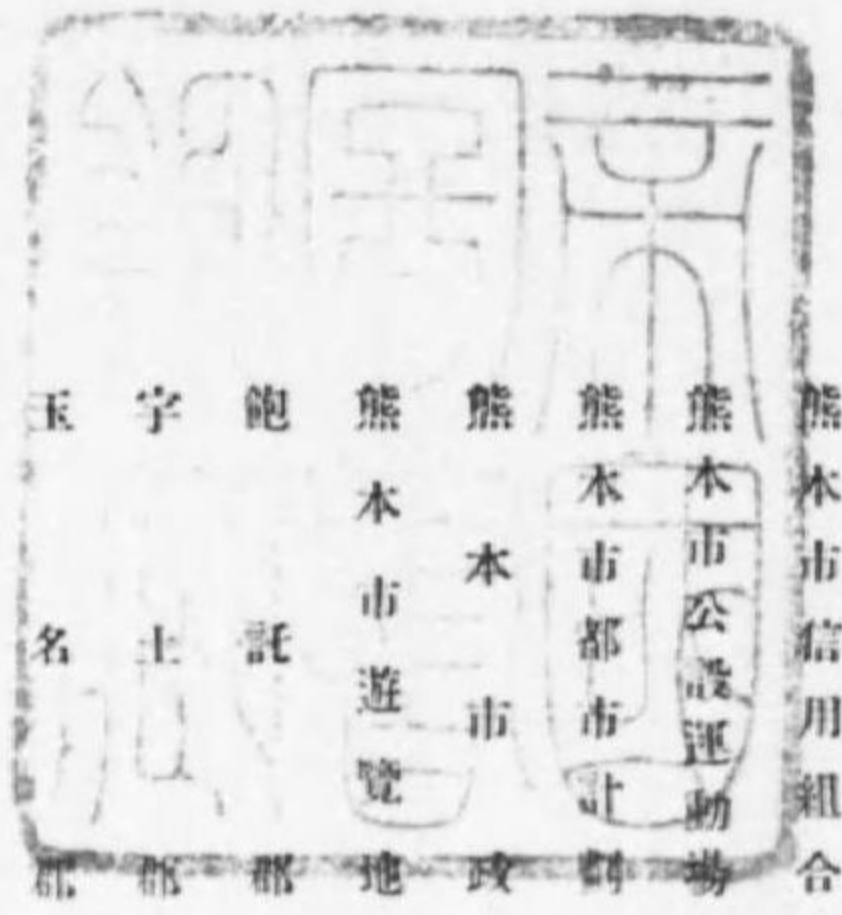 熊本市信用組合
熊本市公設運動場
熊本市都市計劃
熊本市政
熊本市遊覽地
飽託郡
宇土郡
玉名郡